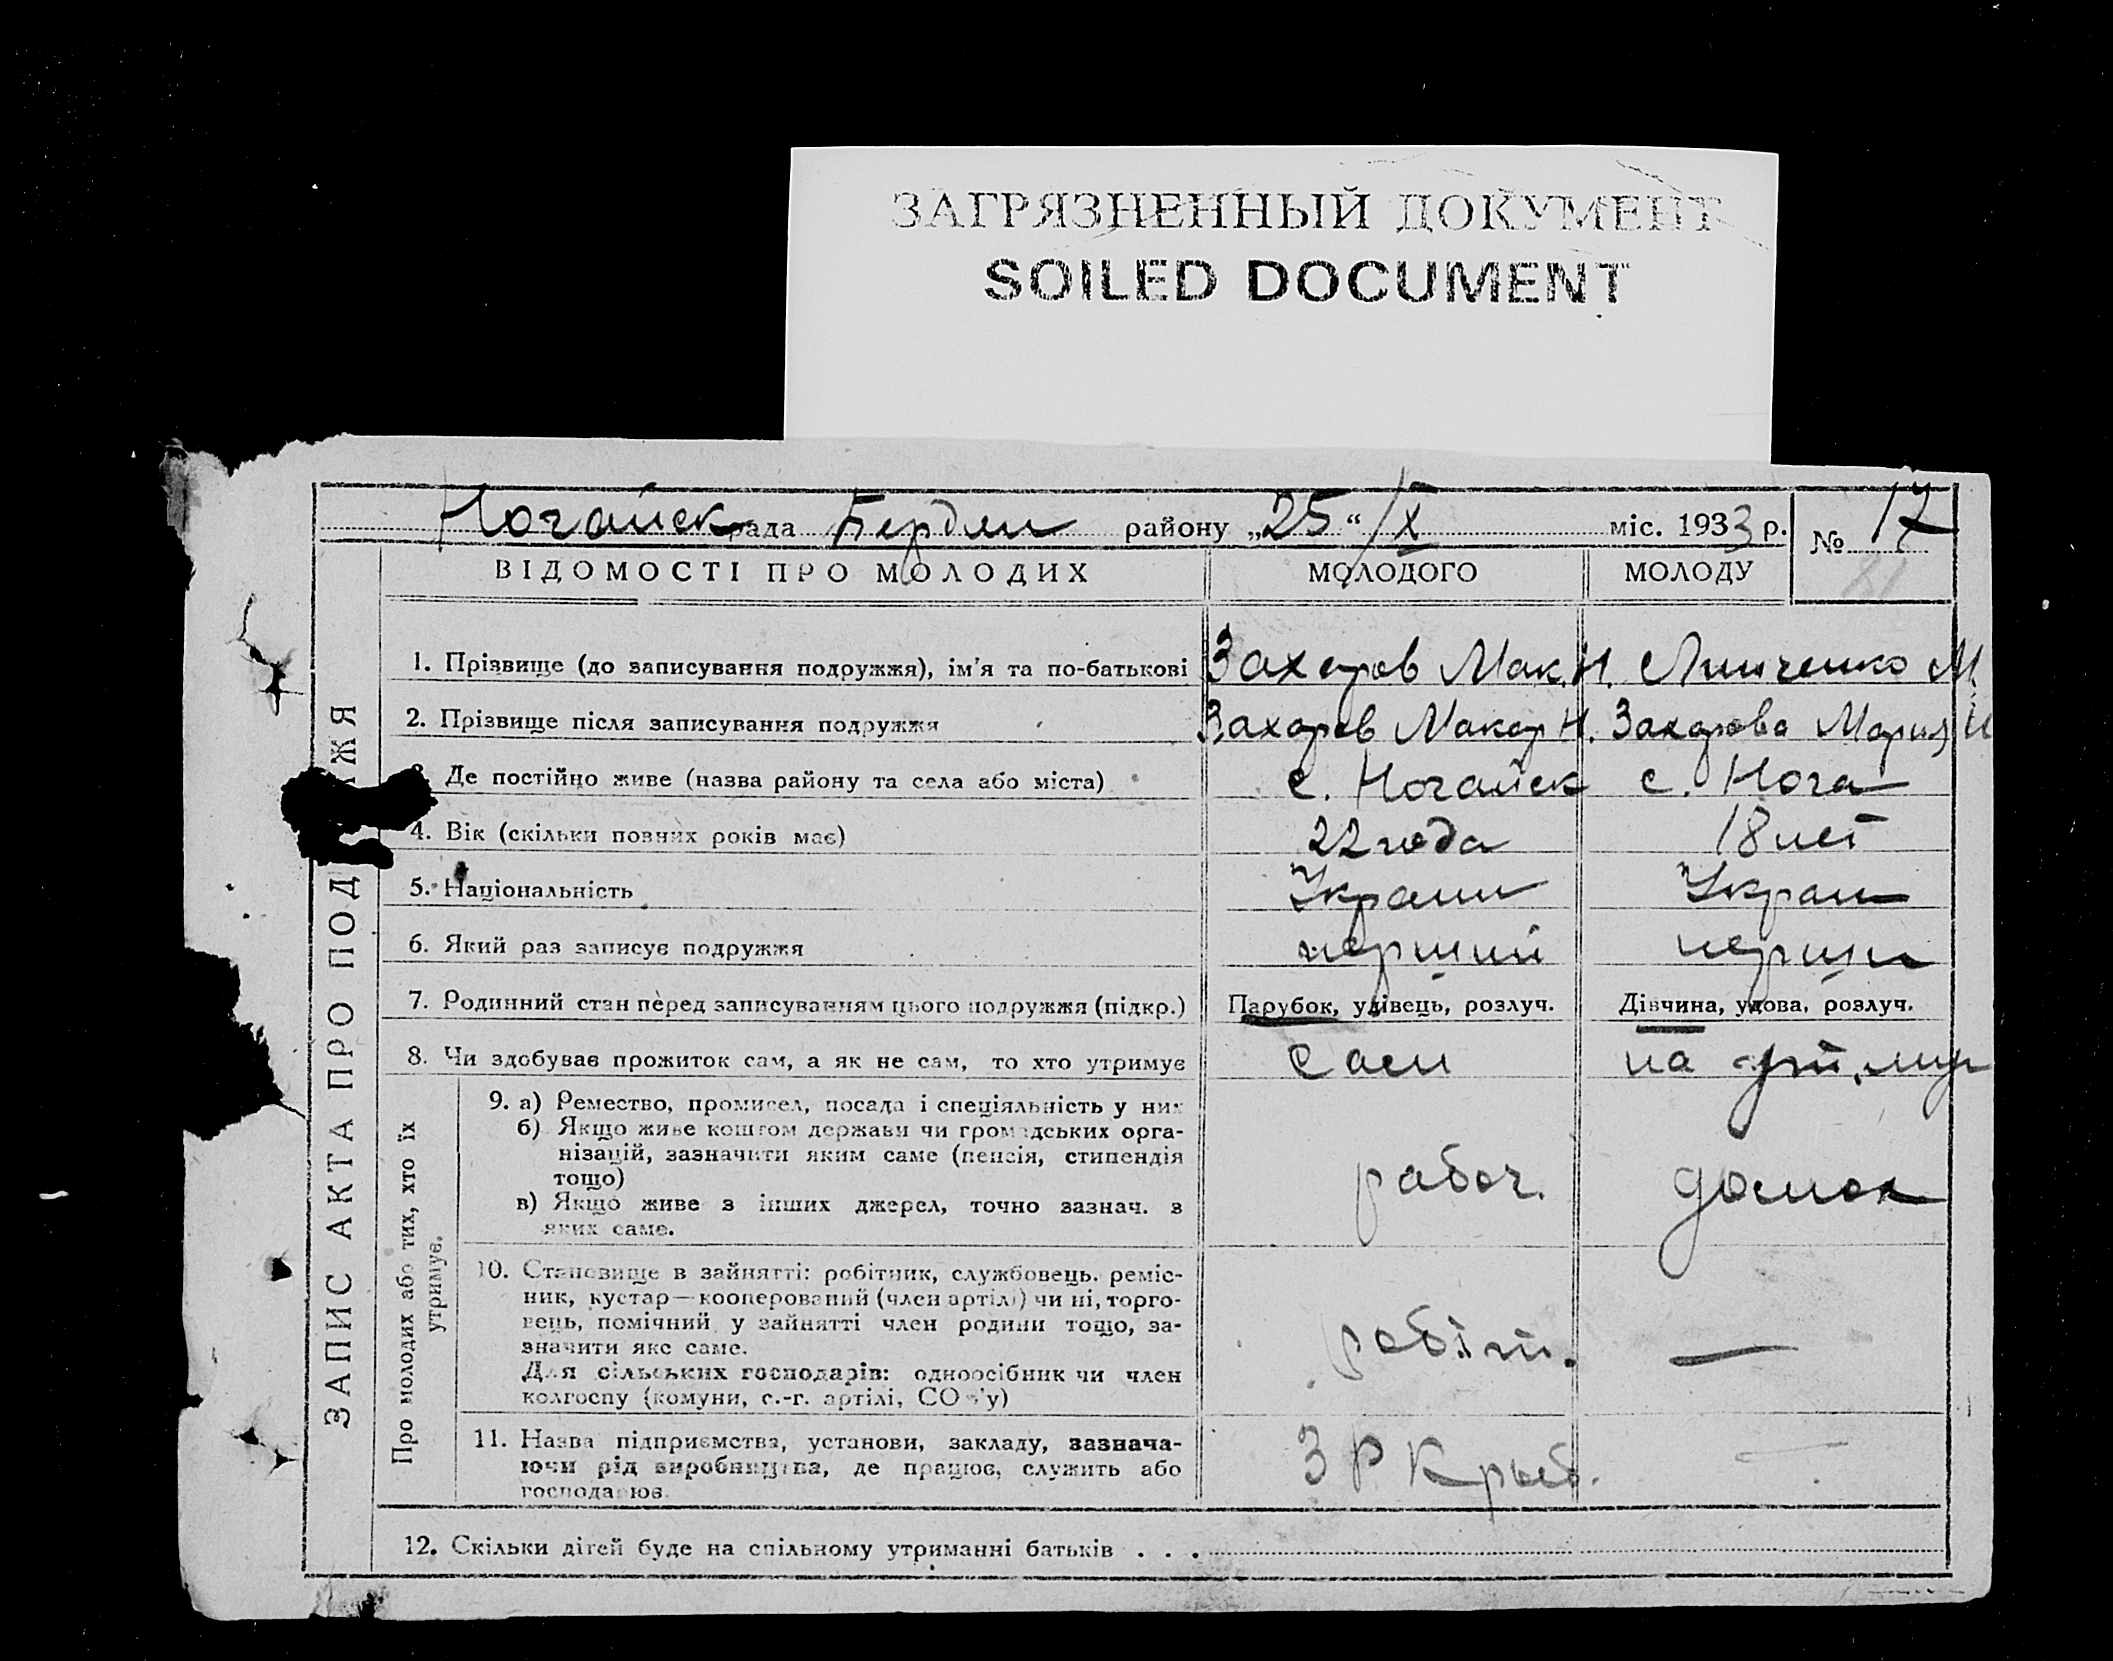 ЗАГРЯЗНЕННЫЙ ДОКУМЕНТ
SOILED DOCUMENT
Ногайск рада Бердян району „25“ /IX міс. 1933 р. № 17
81
ВІДОМОСТІ ПРО МОЛОДИХ МОЛОДОГО МОЛОДУ
ЗАПИС АКТА ПРО ПОД ЖЖЯ
1. Прізвище (до записування подружжя), ім'я та по-батькові Захаров Мак. Н. Линченко М.
2. Прізвище після записування подружжя Захаров Макар Н. Захарова Мария И
3. Де постійно живе (назва району та села або міста) с. Ногайск с. Нога
4. Вік (скільки повних років має) 22 года 18 лет
5. Національність Украин Украин
6. Який раз записує подружжя перший перши
7. Родинний стан перед записуванням цього подружжя (підкр.) Парубок, удівець, розлуч. Дівчина, удова, розлуч.
8. Чи здобував прожиток сам, а як не сам, то хто утримує сам на
Про молодих або тих, хто їх
утримує.
9. а) Ремество, промисел, посада і спеціяльність у них
б) Якщо живе коштом держави чи громадських орга-
нізацій, зазначити яким саме (пенсія, стипендія
тощо) рабоч. домох
в) Якщо живе з інших джерел, точно зазнач. з
яких саме.
10. Становище в зайнятті: робітник, службовець, реміс-
ник, кустар—кооперований (член артілі) чи ні, торго-
вець, помічний у зайнятті член родини тощо, за-
значити яке саме. робіт. —
Для сільських господарів: одноосібник чи член
колгоспу (комуни, с.-г. артілі, СОЗ'у)
11. Назва підприємства, установи, закладу, зазнача-
ючи рід виробництва, де працює, служить або З Р К рыб. —
господарює
12. Скільки дітей буде на спільному утриманні батьків . . .